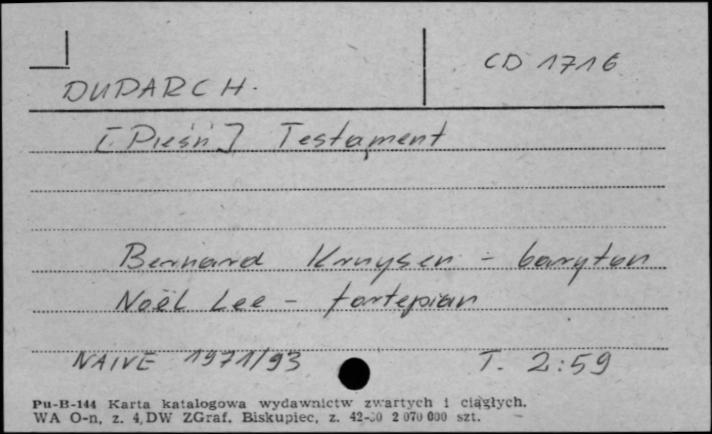 CD 1716
DUPARC H.
[Pieśń] Testament
Bernard Kruysen - baryton
Noël Lee - fortepian
NAIVE 1971/93 T. 2:59
Pu-B-144 Karta katalogowa wydawnictw zwartych i ciągłych.
WA O-n, z. 4, DW ZGraf. Biskupiec, z. 42-80 2 070 000 szt.